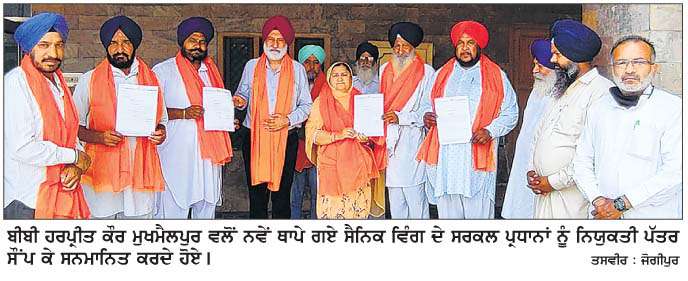 ਬੀਬੀ ਹਰਪ੍ਰੀਤ ਕੌਰ ਮੁਖਮੈਲਪੁਰ ਵਲੋਂ ਨਵੇਂ ਥਾਪੇ ਗਏ ਸੈਨਿਕ ਵਿੰਗ ਦੇ ਸਰਕਲ ਪ੍ਰਧਾਨਾਂ ਨੂੰ ਨਿਯੁਕਤੀ ਪੱਤਰ
ਸੌਂਪ ਕੇ ਸਨਮਾਨਿਤ ਕਰਦੇ ਹੋਏ।
ਤਸਵੀਰ : ਜੋਗੀਪੁਰ